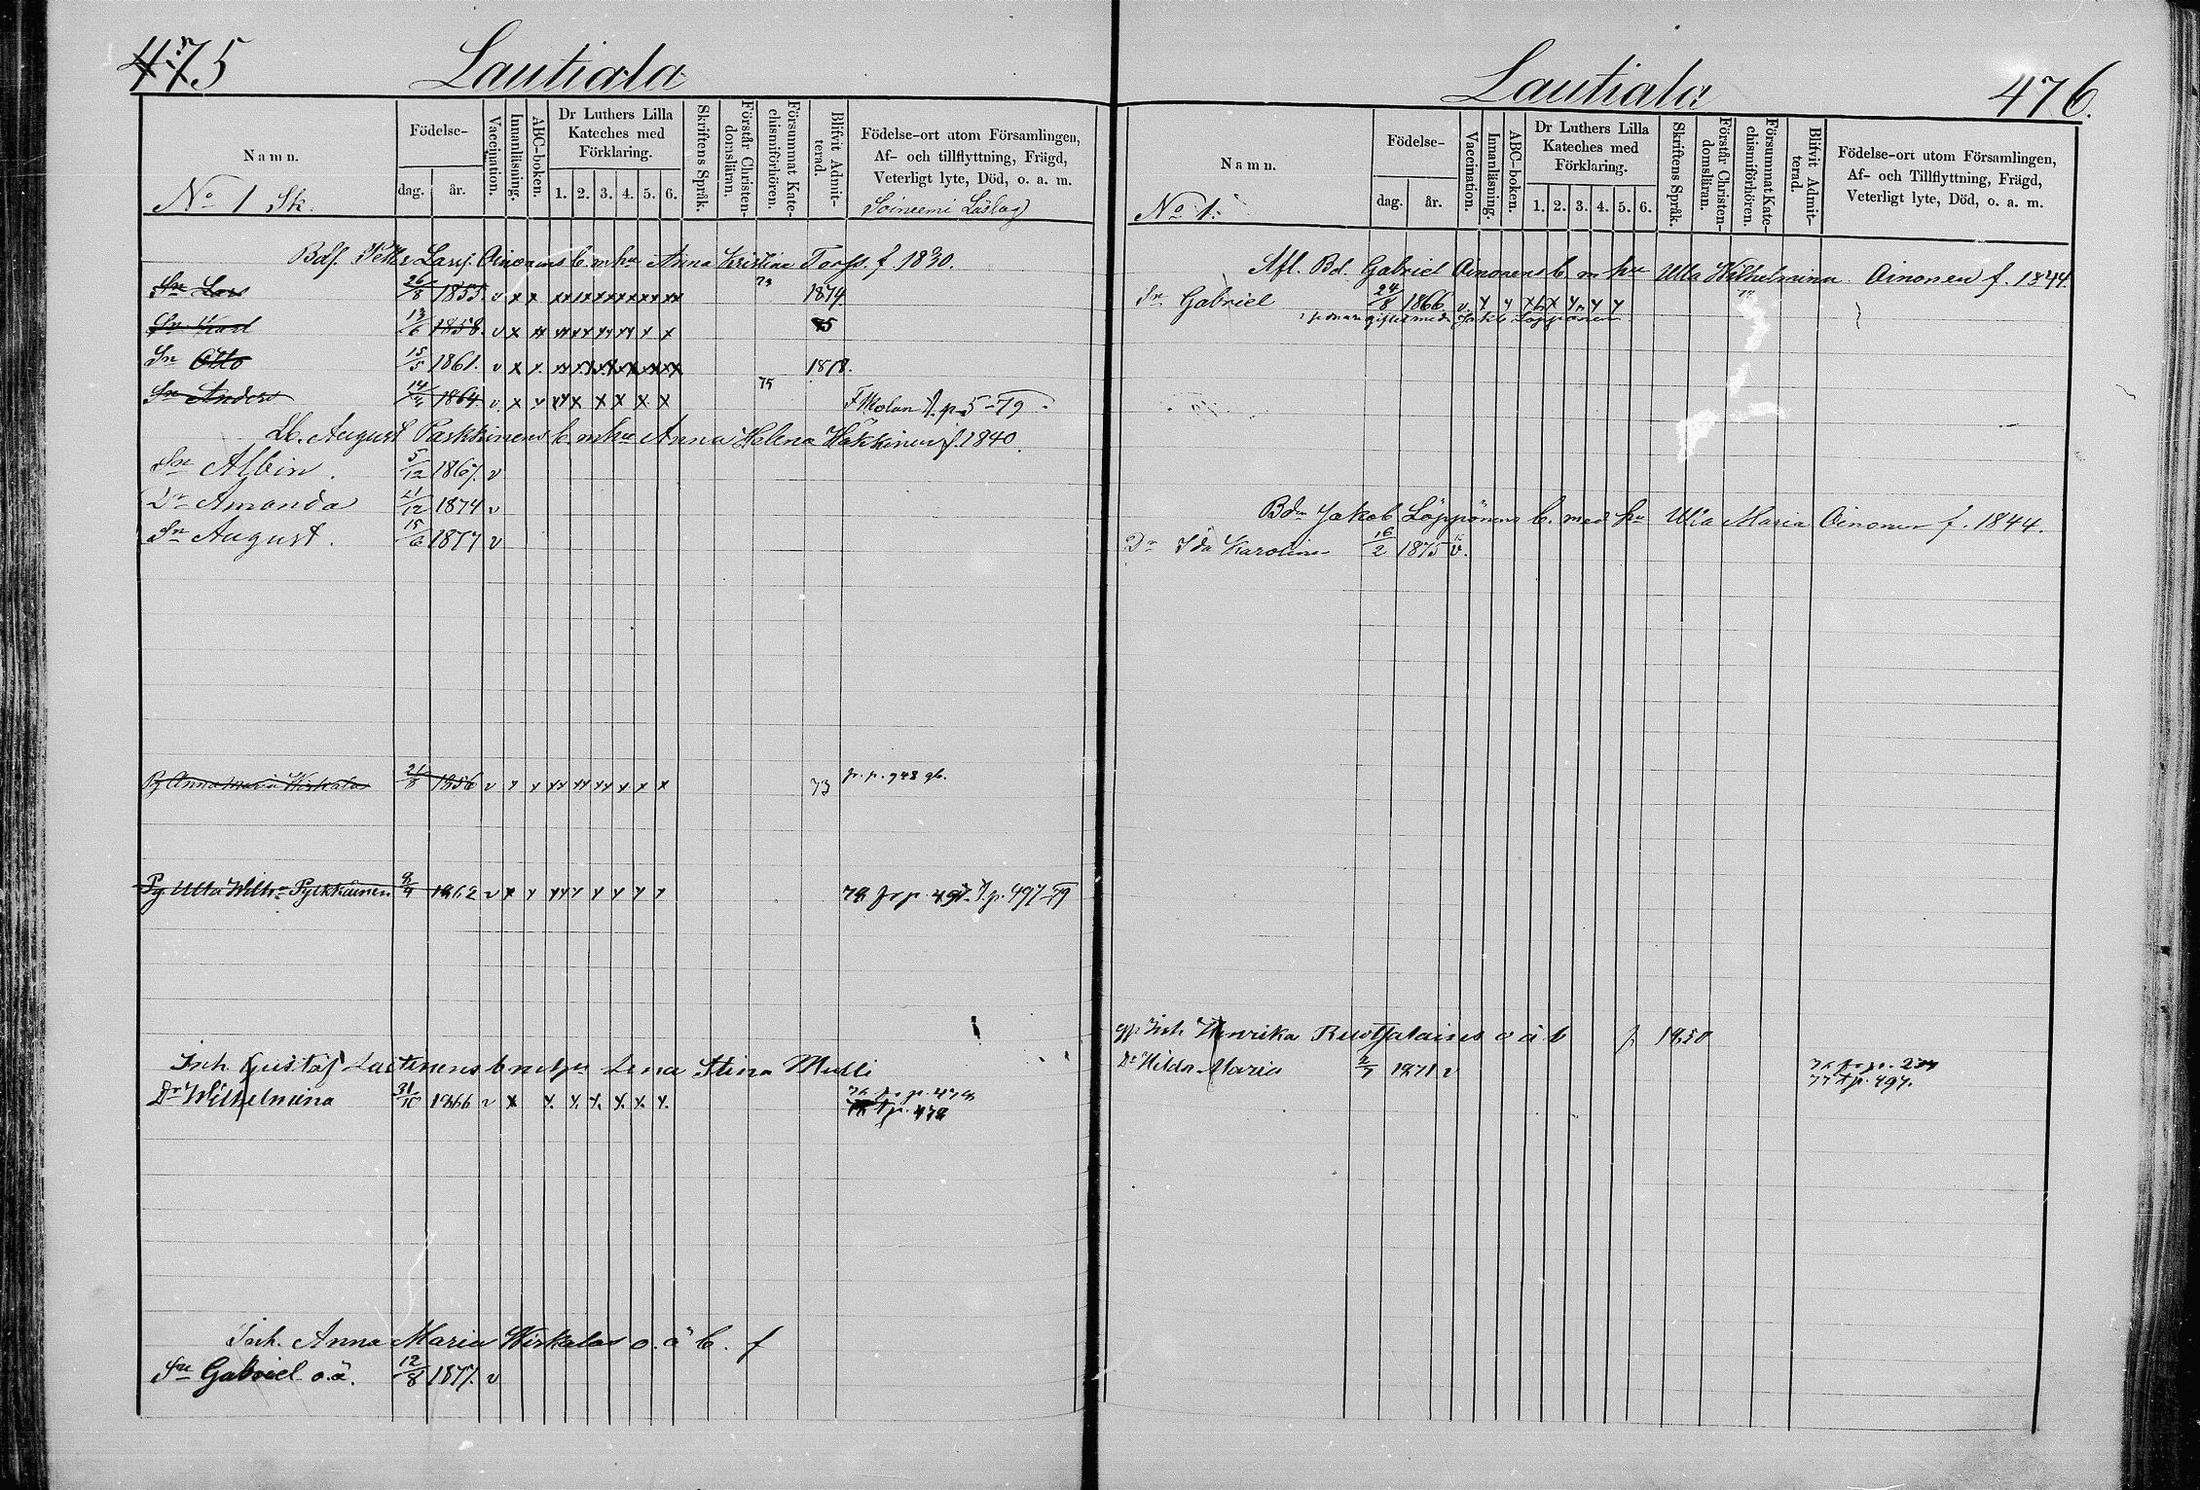 475 Lautiala
Namn.
Födelse-
dag. år.
Vaccination.
Innanläsning.
ABC-boken.
Dr Luthers Lilla
Kateches med
Förklaring.
1. 2. 3. 4. 5. 6.
Skriftens Språk.
Förstår Christen-
domsläran.
Försummat Kate-
chismiförhören.
Blifvit Admit-
terad.
Födelse-ort utom Församlingen,
Af- och tillflyttning, Frägd,
Veterligt lyte, Död, o. a. m.
No 1 Sk.
Soinemi Läslag
Bdf. Petter Larsf. Ainonens b. m hu Anna Kristina Torp. f. 1830.
Sn Lars 26/8 1855. v x x xx xx xx xx xx xx 73 1874
Sn Karl 13/6 1858. v x xx xx xx xx xx x x 75
Sn Otto 15/5 1861. v x x. 1878.
Sn Anders 14/4 1864. v. x x xx x x x x x 75 t. p 5-79
Lb. August Paskkinens b m hu Anna Helena Häkkinen f. 1840.
Sn Albin. 5/12 1867. v
Dr Amanda 21/12 1874 v
Sn August. 15/6 1877 v
Pg Anna Maria Wirkala 21/8 1856 v x x xx xx xx x x x 73 fr. p. 948 gb.
Pg Ulla Wilh:a Pylkkänen 8/4 1862 v x x xx x x x x x 78 fr p. 497. t. p. 497-79
Inh. Gustaf Lactinens b m hu Lena Stina Mulli
Dr Wilhelmina 31/10 1866 v x x. x. x. x. x. x.
Inh. Anna Maria Wirkalas o. ä b. f
Sn Gabriel o.ä. 12/8 1877. v
Lautiala 476.
Namn.
Födelse-
dag. år.
Vaccination.
Innanläsning.
ABC-boken.
Dr Luthers Lilla
Kateches med
Förklaring.
1. 2. 3. 4. 5. 6.
Skriftens Språk.
Förstår Christen-
domsläran.
Försummat Kate-
chismiförhören.
Blifvit Admit-
terad.
Födelse-ort utom Församlingen,
Af- och Tillflyttning, Frägd,
Veterligt lyte, Död, o. a. m.
No 1.
Afl. Bd. Gabriel Ainonens b m hu Ulla Wilhelmina Ainonen f. 1844
Sn Gabriel 24/8 1866. v. x x x x x x x x
gift med Jakb Löppönen
Bdn Jakob Löppönens b. med hu Ulla Maria Ainonen f. 1844.
Dr Ida Karolina 16/2 1875 v.
Inh Henrika Ruotsalaines o ä b f 1850
Dr Hilda Maria 2/7 1871 v
77 t p. 497.